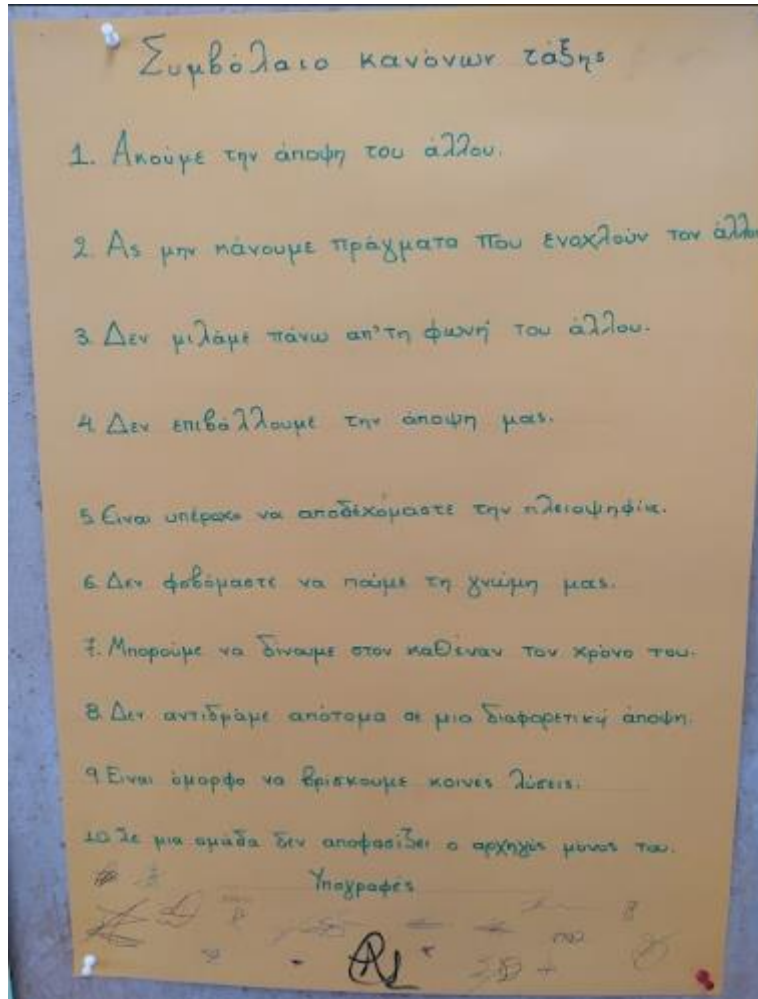 Συμβόλαιο κανόνων τάξης
1. Ακούμε την άποψη του άλλου.
2. Ας μην κάνουμε πράγματα που ενοχλούν τον άλλο
3. Δεν μιλάμε πάνω απ' τη φωνή του άλλου.
4. Δεν επιβάλλουμε την άποψη μας.
5. Είναι υπέροχο να αποδεχόμαστε την πλειοψηφία.
6. Δεν φοβόμαστε να πούμε τη γνώμη μας.
7. Μπορούμε να δίνουμε στον καθέναν τον χρόνο του.
8. Δεν αντιδράμε απότομα σε μια διαφορετική άποψη.
9. Είναι όμορφο να βρίσκουμε κοινές λύσεις.
10. Σε μια ομάδα δεν αποφασίζει ο αρχηγός μόνος του.
Υπογραφές